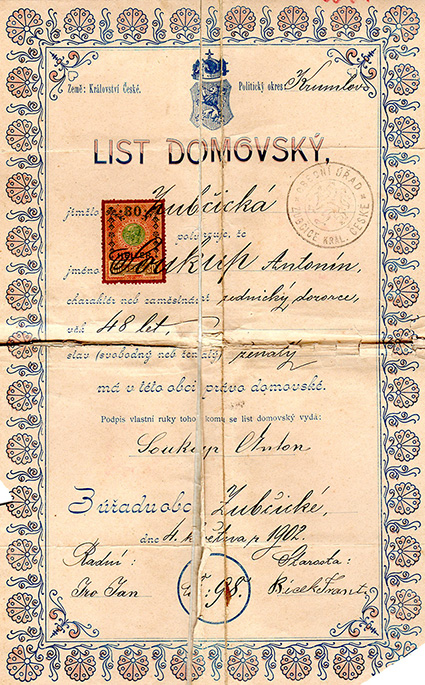 Země: Království České.
Politický okres Krumlov
LIST DOMOVSKÝ,
jímžto Zubčická
potvrzuje, že
jméno Soukup Antonín,
charaktér neb zaměstnání dozorce,
věk 48 let,
stav (svobodný neb ženatý) ženatý
má v této obci právo domovské.
Podpis vlastní ruky toho, komu se list domovský vydá:
Soukup Anton
Z úřadu obce Zubčické,
dne 4. května r 1902.
Radní: Starosta:
Jan 98.